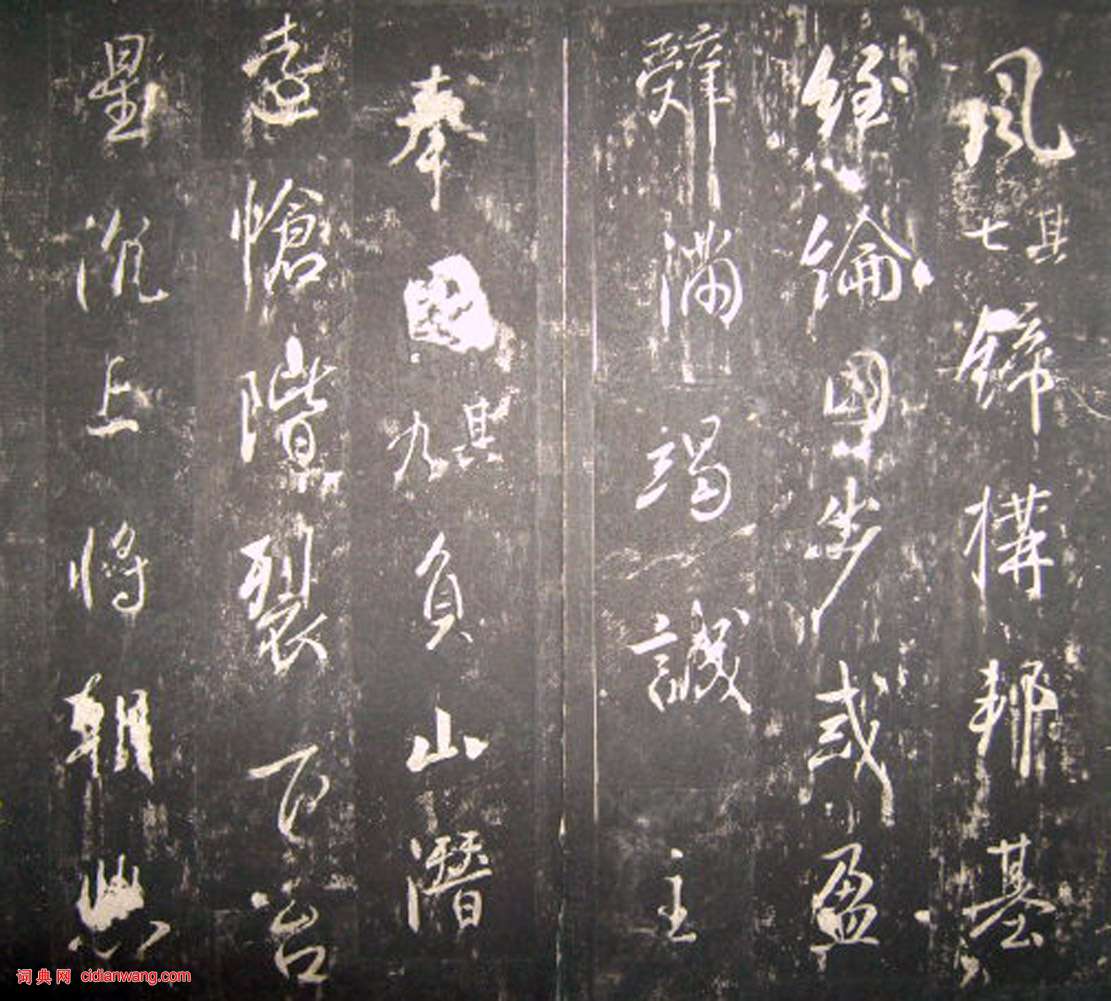 風其七締構邦基
經綸國步戒盈
辤滿竭誠主
奉國其九負山潛
遠愴階裂下台
星沉上將朝典
词典网 cidianwang.com